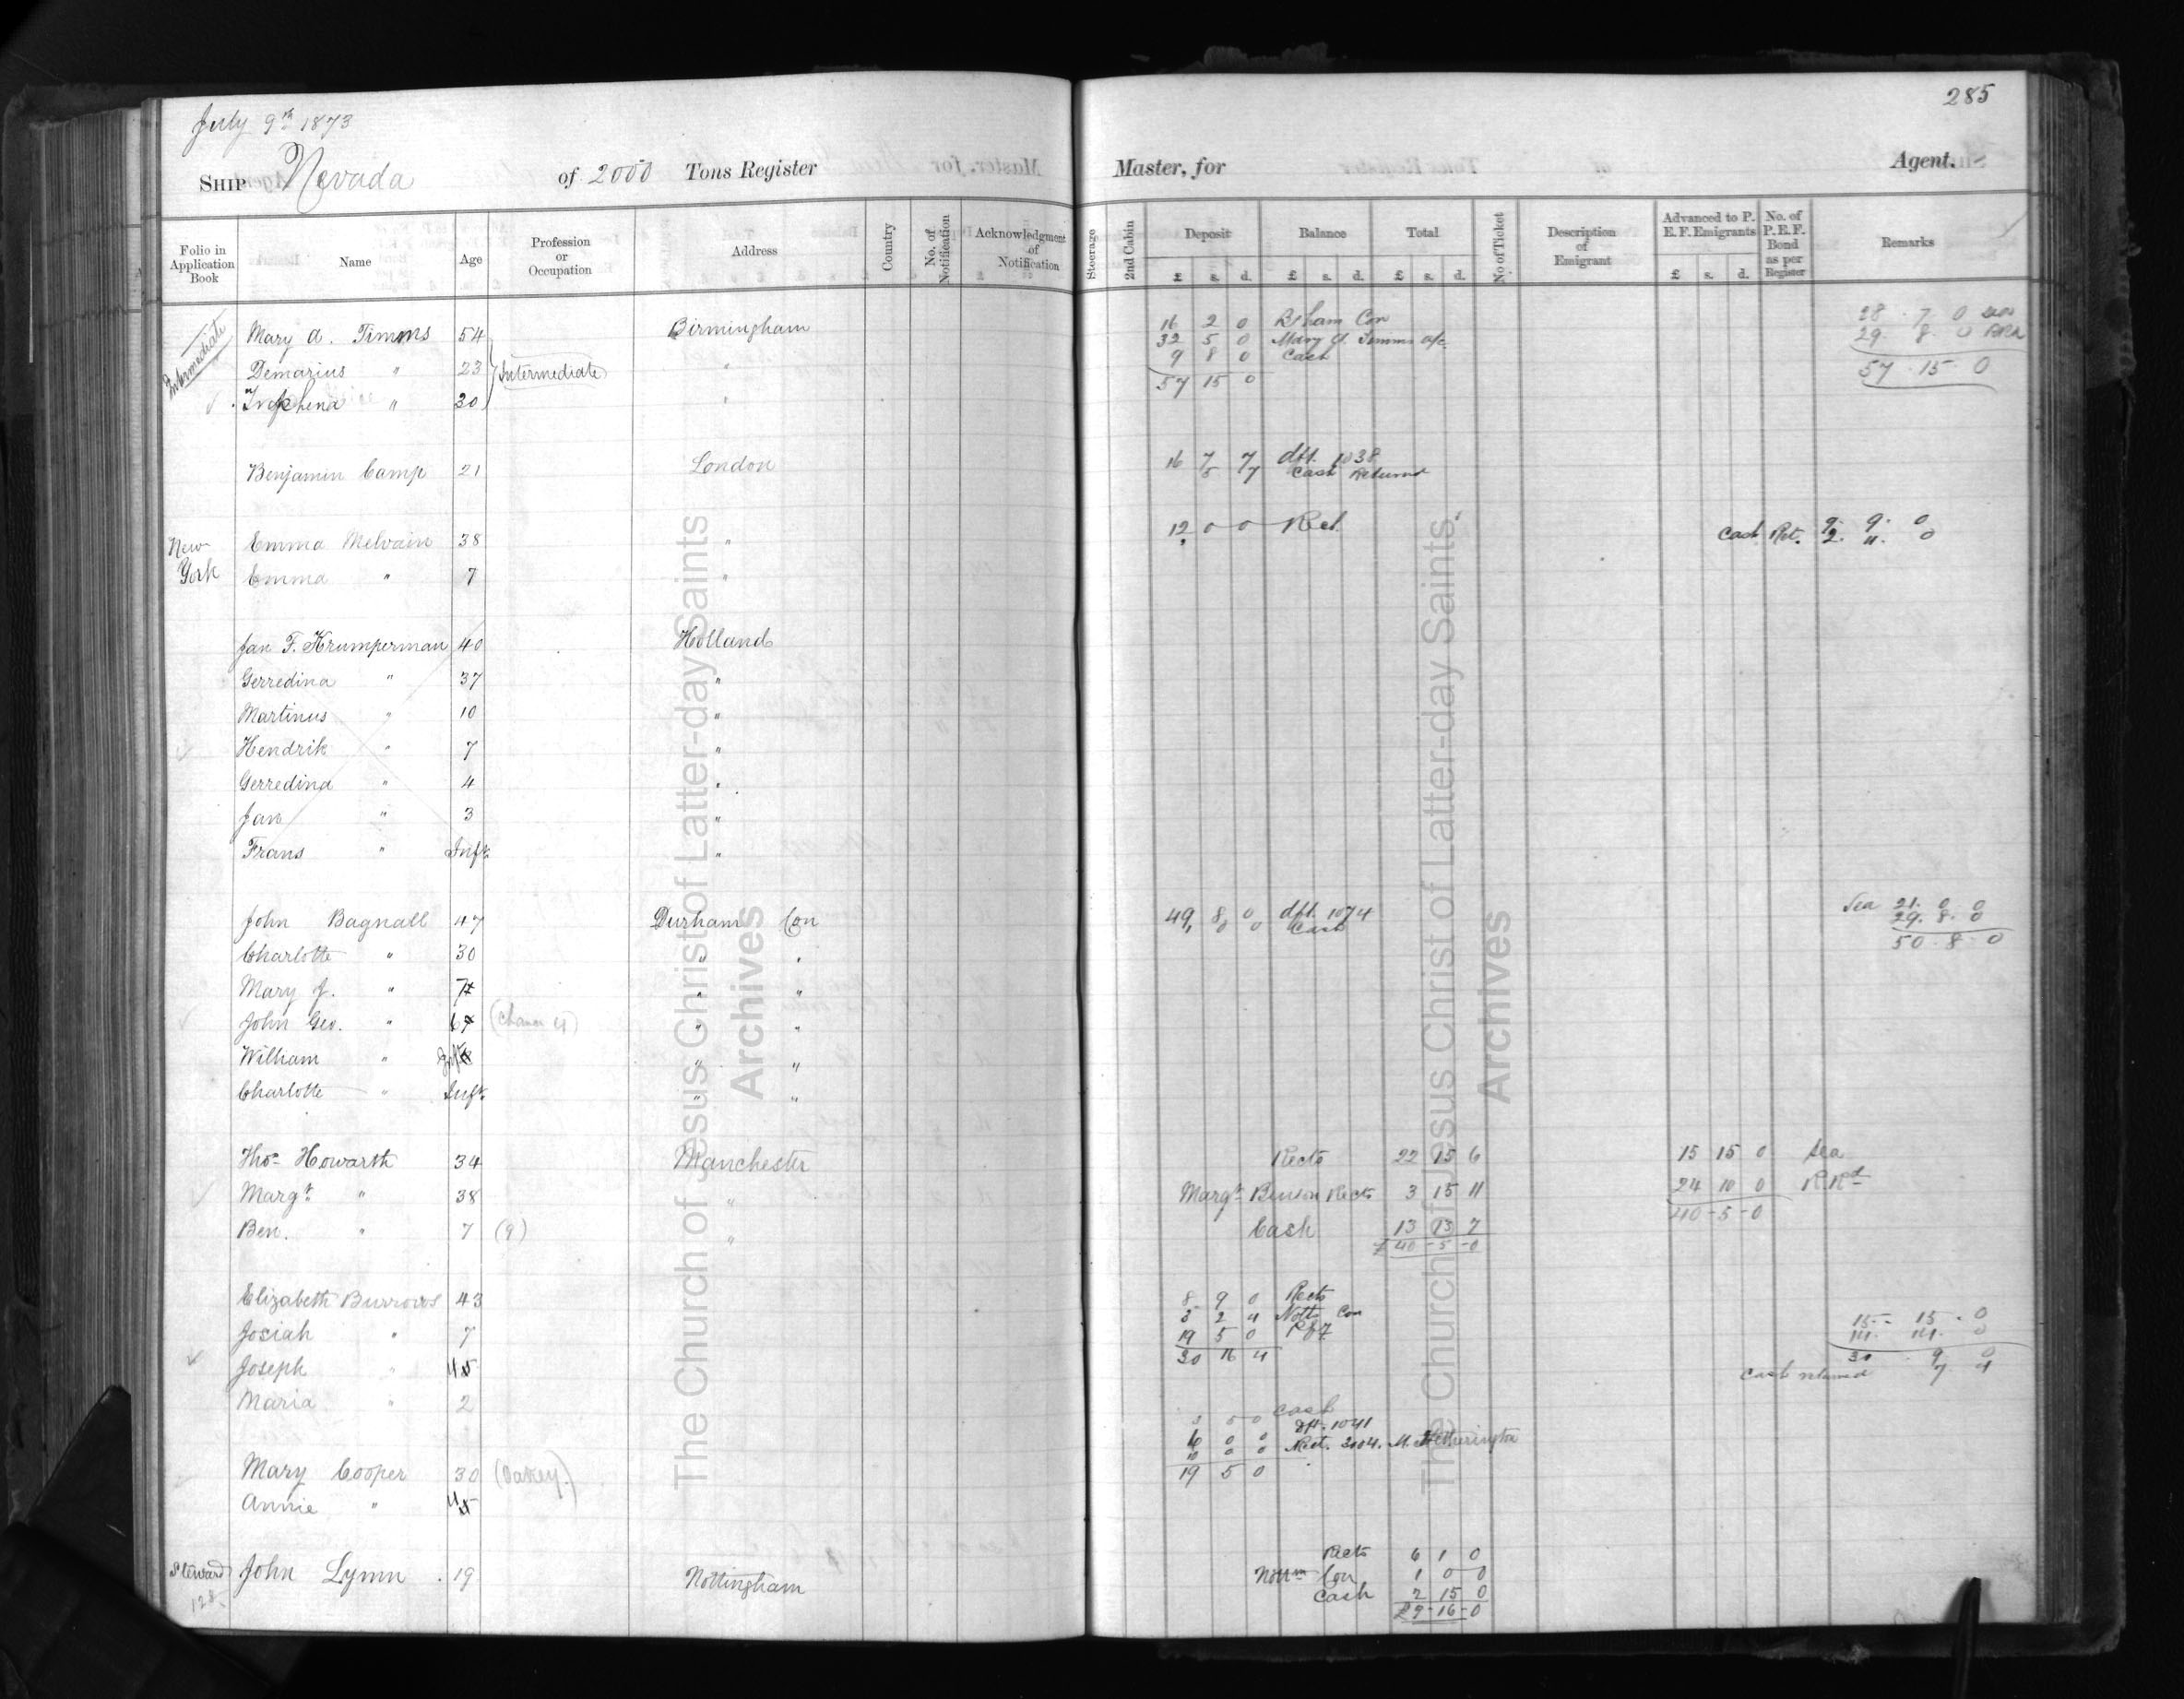 285
July 9th 1873
SHIP Nevada of 2000 Tons Register Master, for Agent.
Folio in Application Book Name Age Profession or Occupation Address Country No. of Notification Acknowledgment of Notification Steerage 2nd Cabin Deposit Balance Total No of Ticket Description of Emigrant Advanced to P. E. F. Emigrants No. of P. E. F. Bond as per Register Remarks
£ s. d. £ s. d. £ s. d. £ s. d.
Intermediate
Mary A. Timms 54 Birmingham 16 2 0 B'ham Con 28 . 7 0
32 5 0 Mary A. Timms a/c. 29 . 8 . 0
Demarius " 23 Intermediate " 9 8 0 Cash 57 . 15 . 0
57 15 0
" 20 "
Benjamin Camp 21 London 16 7 7 dft. 1038
5 7 Cash Returned
New York
Emma Melvain 38 " 12 0 0 Rct. 9. 9. 0
Cash Ret. 2. 11. 0
Emma " 7 "
Jan F. Krumperman 40 Holland
Gerredina " 37 "
Martinus " 10 "
Hendrik " 7 "
Gerredina " 4 "
Jan " 3 "
Frans " Inft. "
John Bagnall 47 Durham Con 49 8 0 dft. 1074 Sea 21. 0. 0
Cash 29. 8. 0
50 . 8 . 0
Charlotte " 30 " "
Mary J. " 7 " "
John Geo. " 6 " "
William " Inft " "
Charlotte " Inft. " "
Thos Howarth 34 Manchester Rects 22 15 6 15 15 0 Sea
Margt. " 38 " Margt. Benson Rects 3 15 11 24 10 0 R.Rd
40 - 5 - 0
Ben. " 7 (9) " Cash 13 13 7
£ 40 - 5 - 0
Elizabeth Burrows 43 8 9 0 Rects
3 2 4 Notts Con 15 - 15 . 0
Josiah " 7 19 5 0 14. 14. 0
30 16 4 30 . 9 0
Joseph " 5 Cash returned 7 4
Maria " 2 Cash
3 5 0 dft. 1041
6 0 0 Rect. 3104. M. Hetherington
10 0 0
Mary Cooper 30 (Oakey.) 19 5 0
Annie " 5
Rects 6 1 0
Steward John Lynn . 19 Nottingham Nottm Con 1 0 0
128 Cash 2 15 0
£9 - 16 - 0
The Church of Jesus Christ of Latter-day Saints
Archives
The Church of Jesus Christ of Latter-day Saints.
Archives